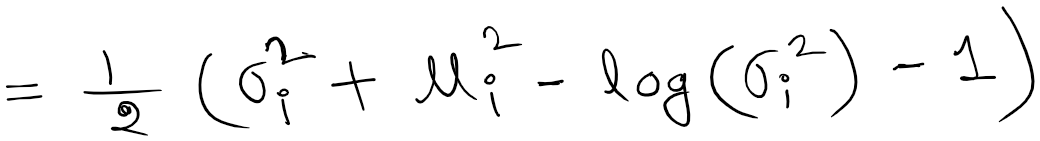 = 1/2 (σᵢ² + μᵢ² - log(σᵢ²) - 1)